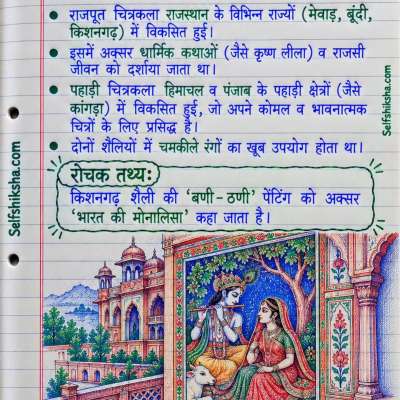 • राजपूत चित्रकला राजस्थान के विभिन्न राज्यों (मेवाड़, बूंदी,
किशनगढ़) में विकसित हुई।
• इसमें अक्सर धार्मिक कथाओं (जैसे कृष्ण लीला) व राजसी
जीवन को दर्शाया जाता था।
• पहाड़ी चित्रकला हिमाचल व पंजाब के पहाड़ी क्षेत्रों (जैसे
कांगड़ा) में विकसित हुई, जो अपने कोमल व भावनात्मक
चित्रों के लिए प्रसिद्ध है।
• दोनों शैलियों में चमकीले रंगों का खूब उपयोग होता था।
रोचक तथ्य:
किशनगढ़ शैली की 'बणी-ठणी' पेंटिंग को अक्सर
'भारत की मोनालिसा' कहा जाता है।
Selfshiksha.com
Selfshiksha.com